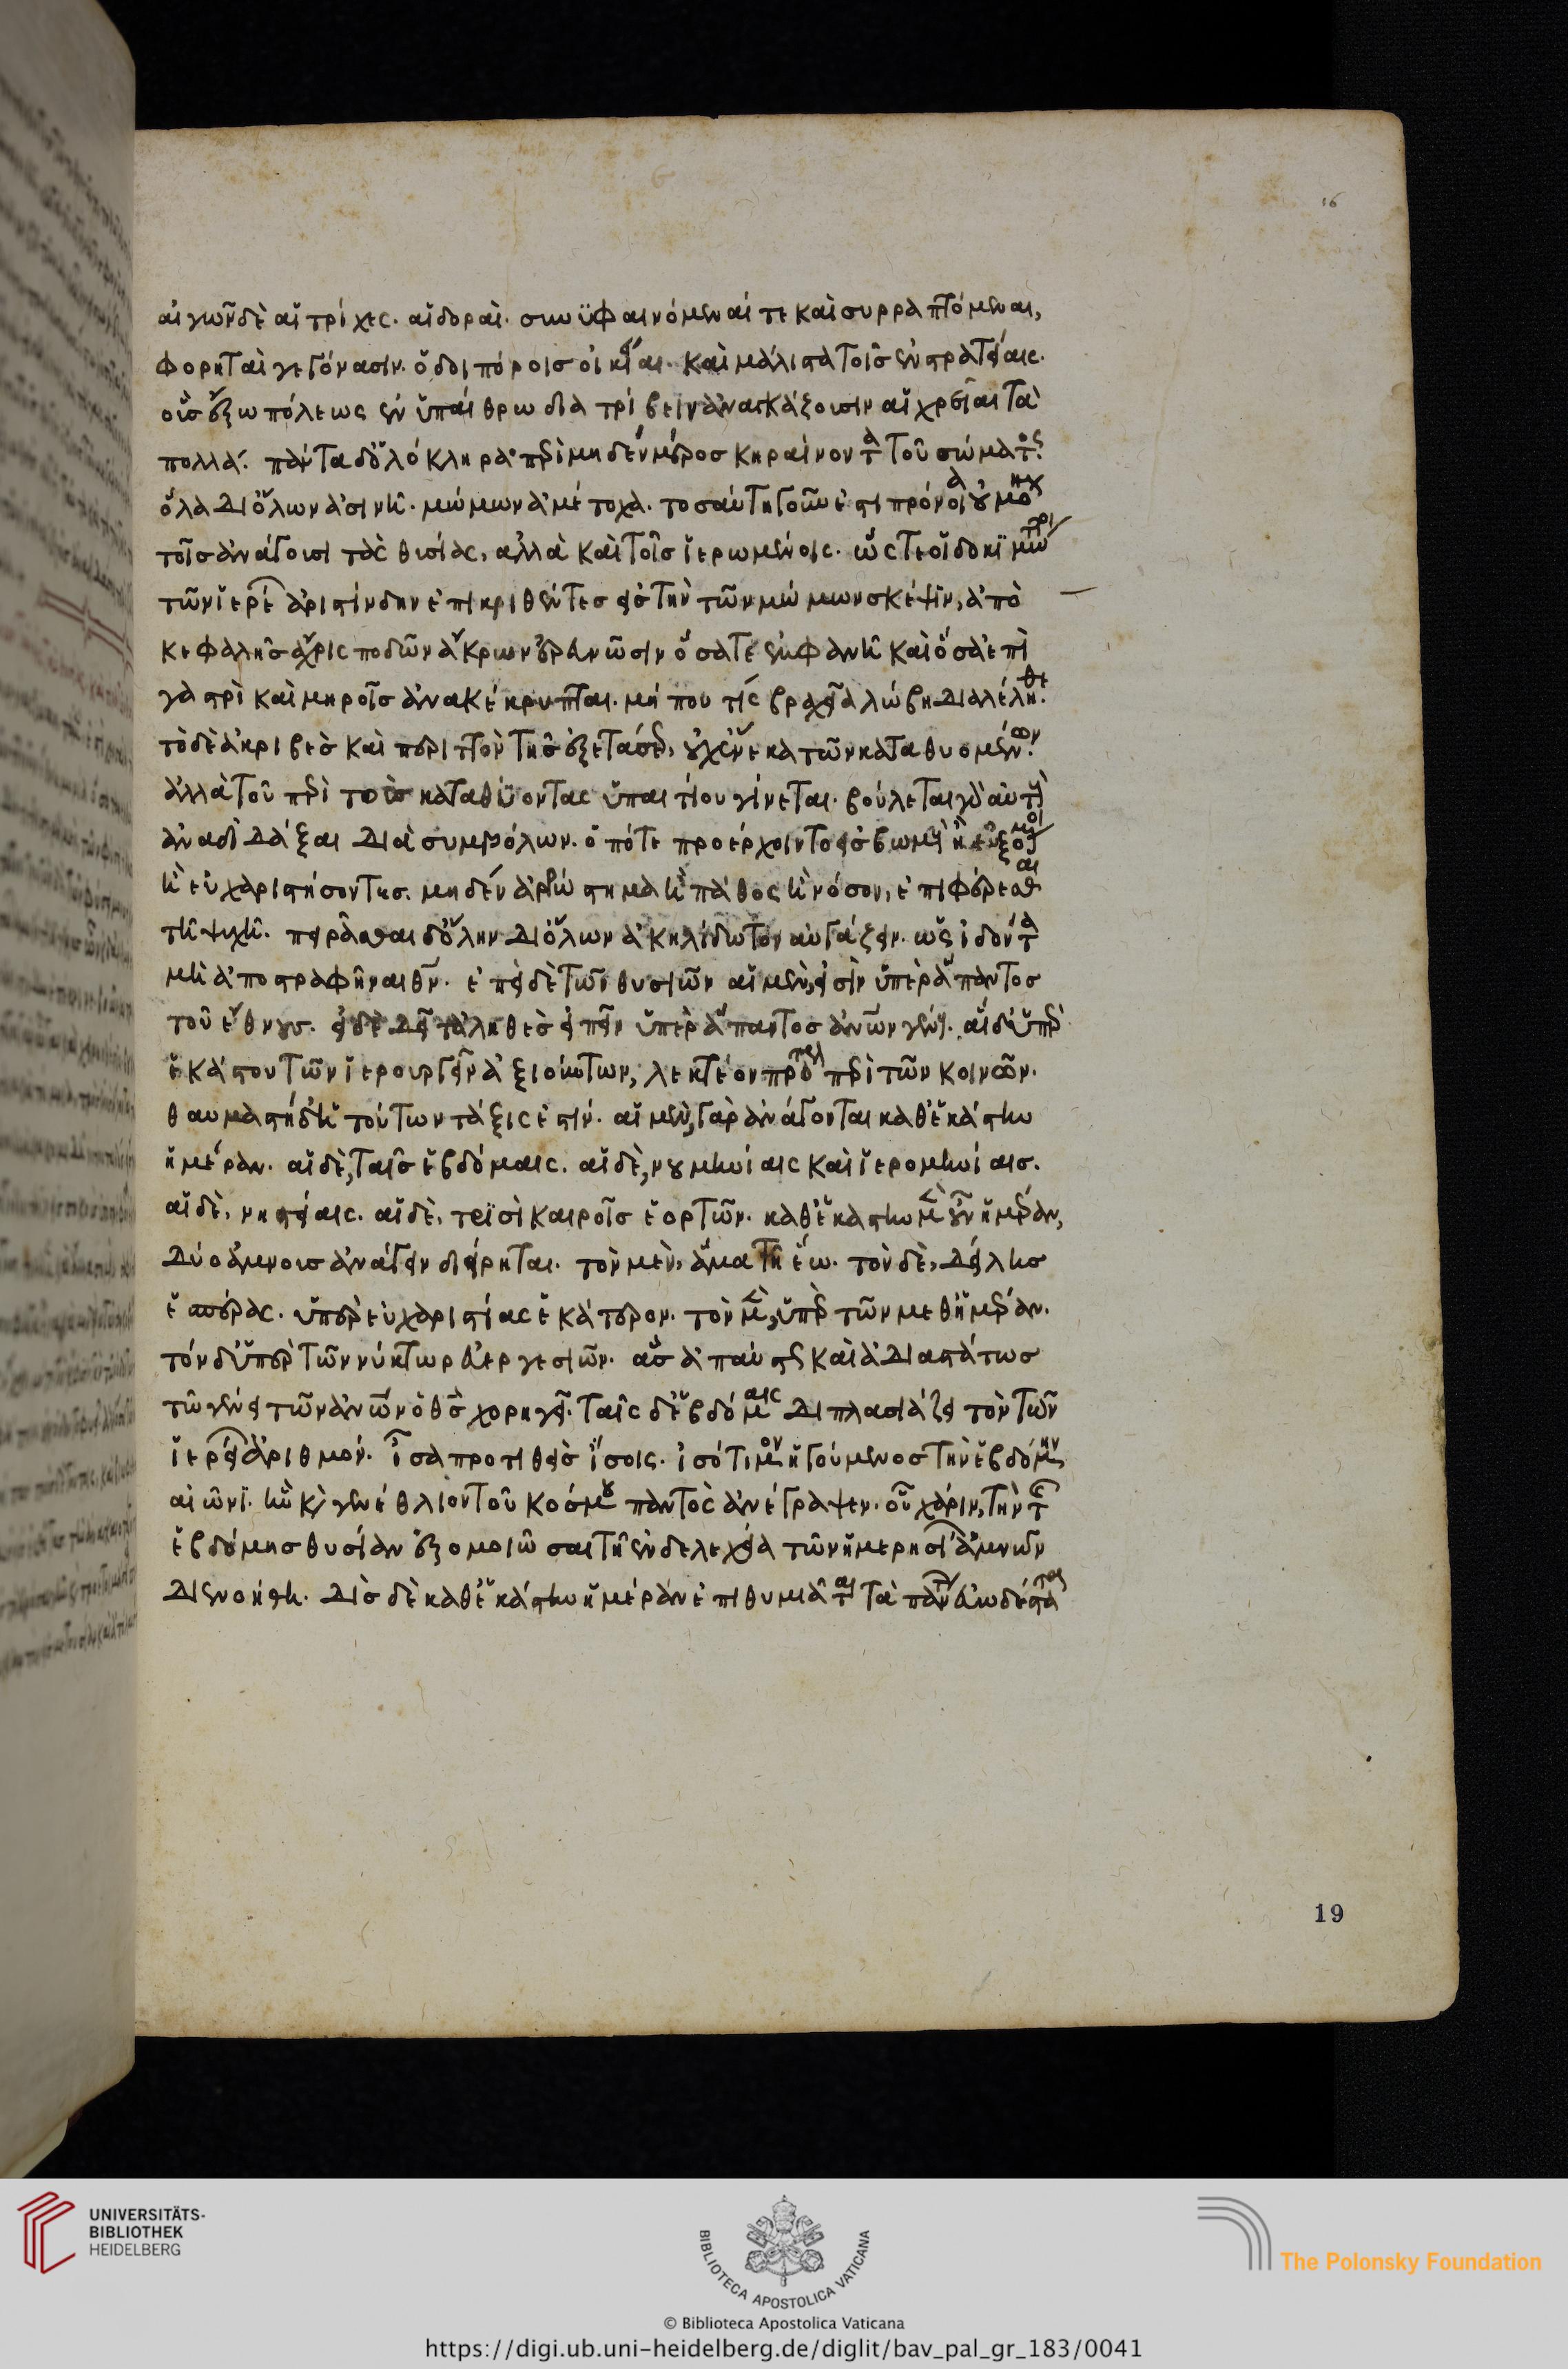 16
αἰγῶν δὲ αἱ τρίχες. αἱ δοραὶ. συνυφαινόμεναί τε καὶ συρραπτόμεναι,
φορηταὶ γεγόνασιν ὁδοιπόροις οἰκίαι. καὶ μάλιστα τοῖς ἐν στρατείαις.
οὓς ἔξω πόλεως ἐν ὑπαίθρω διατρίβειν ἀναγκάζουσιν αἱ χρεῖαι τὰ
πολλά. πάντα δ' ὁλόκληρα περὶ μηδὲν μέρος κηραίνοντα τοῦ σώματος.
ὅλα δι' ὅλων ἀσινῆ. μώμων ἀμέτοχα. τοσαύτη γοῦν ἐστι πρόνοια οὐ μόνον
τοῖς ἀνάγουσι τὰς θυσίας, ἀλλὰ καὶ τοῖς ἱερωμένοις. ὥστε οἱ δοκιμώτατοι
τῶν ἱερέων ἀριστίνδην ἐπικριθέντες εἰς τὴν τῶν μώμων σκέψιν, ἀπὸ
κεφαλῆς ἄχρις ποδῶν ἄκρων ἐρευνῶσιν ὅσα τε ἐμφανῆ καὶ ὅσα ἐπὶ
γαστρὶ καὶ μηροῖς ἀνακέκρυπται. μή που τίς βραχεῖα λώβη διαλέληθε.
τὸ δὲ ἀκριβὲς καὶ περιττὸν τῆς ἐξετάσεως, οὐχ ἕνεκα τῶν καταθυομένων.
ἀλλὰ τοῦ περὶ τοὺς καταθύοντας ὑπαιτίου γίνεται. βούλεται γὰρ αὐτοὺς
ἀναδιδάξαι διὰ συμβόλων. ὁπότε προσέρχοιντο εἰς βωμοὺς ἢ εὐξόμενοι
ἢ εὐχαριστήσοντες. μηδὲν ἀρρώστημα ἢ πάθος ἢ νόσον, ἐπιφέρεσθαι
τῆ ψυχῆ. πειρᾶσθαι δ' ὅλην δι' ὅλων ἀκηλίδωτον αὐγάζειν. ὡς ἰδόντα
μὴ ἀποστραφῆναι θεόν. ἐπεὶ δὲ τῶν θυσιῶν αἱ μέν, εἰσὶν ὑπὲρ ἅπαντος
τοῦ ἔθνους. εἰ δὲ δεῖ τἀληθὲς εἰπεῖν ὑπὲρ ἅπαντος ἀνθρώπων γένους. αἱ δ' ὑπὲρ
ἑκάστου τῶν ἱερουργεῖν ἀξιούντων, λεκτέον πρότερον περὶ τῶν κοινῶν.
θαυμαστὴ δ' ἡ τούτων τάξις ἐστίν. αἱ μὲν, γὰρ ἀνάγονται καθ' ἑκάστην
ἡμέραν. αἱ δὲ, ταῖς ἑβδόμαις. αἱ δὲ, νουμηνίαις καὶ ἱερομηνίαις.
αἱ δὲ, νηστείαις. αἱ δὲ, τρισὶ καιροῖς ἑορτῶν. καθ' ἑκάστην μὲν οὖν ἡμέραν,
δύο ἀμνοὺς ἀνάγειν διείρηται. τὸν μὲν, ἅμα τῆ ἕω. τὸν δὲ, δείλης
ἑσπέρας. ὑπὲρ εὐχαριστίας ἑκάτερον. τὸν μὲν, ὑπὲρ τῶν μεθημέραν.
τὸν δ' ὑπὲρ τῶν νύκτωρ εὐεργεσιῶν. ἃς ἀπαύστως καὶ ἀδιαστάτως
τῶ γένει τῶν ἀνθρώπων ὁ θεὸς χορηγεῖ. ταῖς δ' ἑβδόμαις διπλασιάζει τὸν τῶν
ἱερείων ἀριθμόν. ἴσα προστιθεὶς ἴσοις. ἰσότιμον ἡγούμενος τὴν ἑβδόμην,
αἰῶνι. ἣν καὶ γενέθλιον τοῦ κόσμου παντὸς ἀνέγραψεν. οὗ χάριν, τὴν τῆς
ἑβδόμης θυσίαν ἐξομοιῶσαι τῆ ἐνδελεχεία τῶν ἡμερησίων ἀμνῶν
διενοήθη. δὶς δὲ καθ' ἑκάστην ἡμέραν ἐπιθυμιᾶται τὰ πάντων εὐωδέστατα
19
UNIVERSITÄTS-
BIBLIOTHEK
HEIDELBERG
BIBLIOTECA APOSTOLICA VATICANA
The Polonsky Foundation
© Biblioteca Apostolica Vaticana
https://digi.ub.uni-heidelberg.de/diglit/bav_pal_gr_183/0041